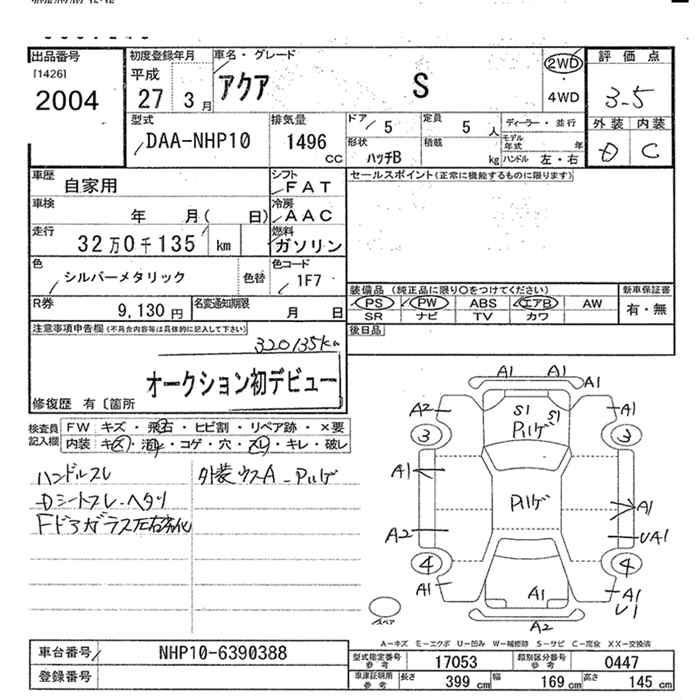 出品番号
[1426]
2004
初度登録年月
平成
27 3月
車名・グレード
アクア S
2WD
4WD
評価点
3.5
外装 内装
D C
型式
DAA-NHP10
排気量
1496
CC
ドア
5
定員
5 人
形状
ハッチB
積載
kg
ディーラー・並行
モデル年式 年
ハンドル 左・右
車歴
自家用
シフト
FAT
セールスポイント(正常に機能するものに限ります)
車検
年 月( 日)
冷房
AAC
走行
32万0千135 km
燃料
ガソリン
色
シルバーメタリック
色替
色コード
1F7
装備品 (純正品に限り○をつけてください)
新車保証書
PS PW ABS エアB AW
有・無
SR ナビ TV カワ
R券
9,130円
名変通知期限
月 日
後日品
注意事項申告欄(不具合内容等は具体的に記入して下さい)
320135km
オークション初デビュー
修復歴 有〔箇所
検査員記入欄
FW キズ・飛石・ヒビ割・リペア跡・×要
内装 キズ・汚れ・コゲ・穴・スレ・キレ・破レ
ハンドルスレ
外装ウスA_PハゲDシートスレ・ヘタリ
Fドアガラス左右劣化
A1 A1
A1
A2
S1
S1
Pハゲ
A1
3
3
A1
Pハゲ
A1
A2
UA1
4
4
A1
A1
A1
U1
A2
スペア
A-キズ E-エクボ U-凹み W-補修跡 S-サビ C-腐食 XX-交換済
車台番号
NHP10-6390388
登録番号
型式指定番号
参考
17053
類別区分番号
参考
0447
車庫証明用
参考
長さ
399 cm
幅
169 cm
高さ
145 cm